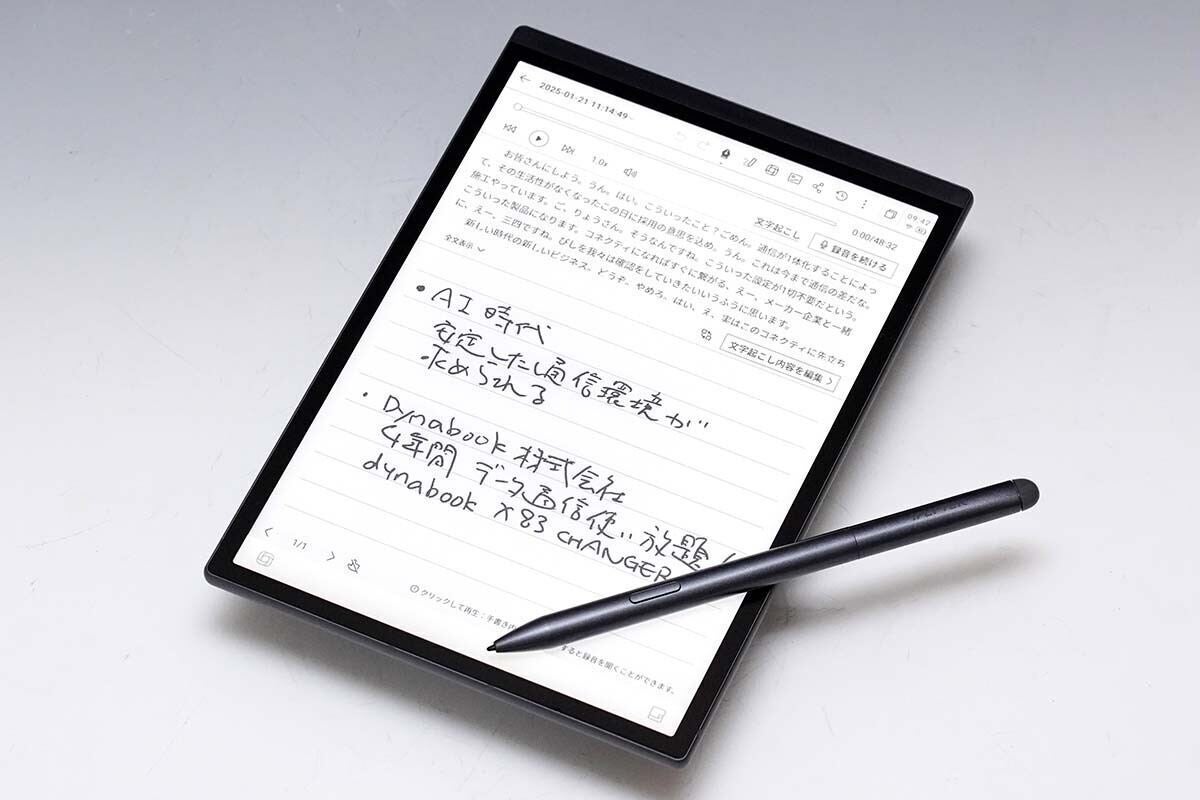 2025-01-21 11:14:49
09:42
1.0x
0:00/48:32
文字起こし
録音を続ける
お皆さんにしよう。うん。はい。こういったこと?ごめん。通信が1体化することによっ
て、その生活性がなくなったこの日に採用の意思を込め。うん。これは今まで通信の差だな。
施工やっています。ご、りょうさん。そうなんですね。こういった設定が1切不要だという。
こういった製品になります。コネクティになればすぐに繋がる、えー、メーカー企業と一緒
に、えー、三四ですね。びしを我々は確認をしていきたいいうふうに思います。
新しい時代の新しいビジネス。どうぞ、やめろ、はい、え、実はこのコネクティに先立ち
全文表示
文字起こし内容を編集
・AI時代
安定した通信環境が
求められる
・Dynabook株式会社
4年間データ通信使い放題
dynabook X83 CHANGER
1/1
クリックして再生:手書き内
すると録音を聞くことができます。